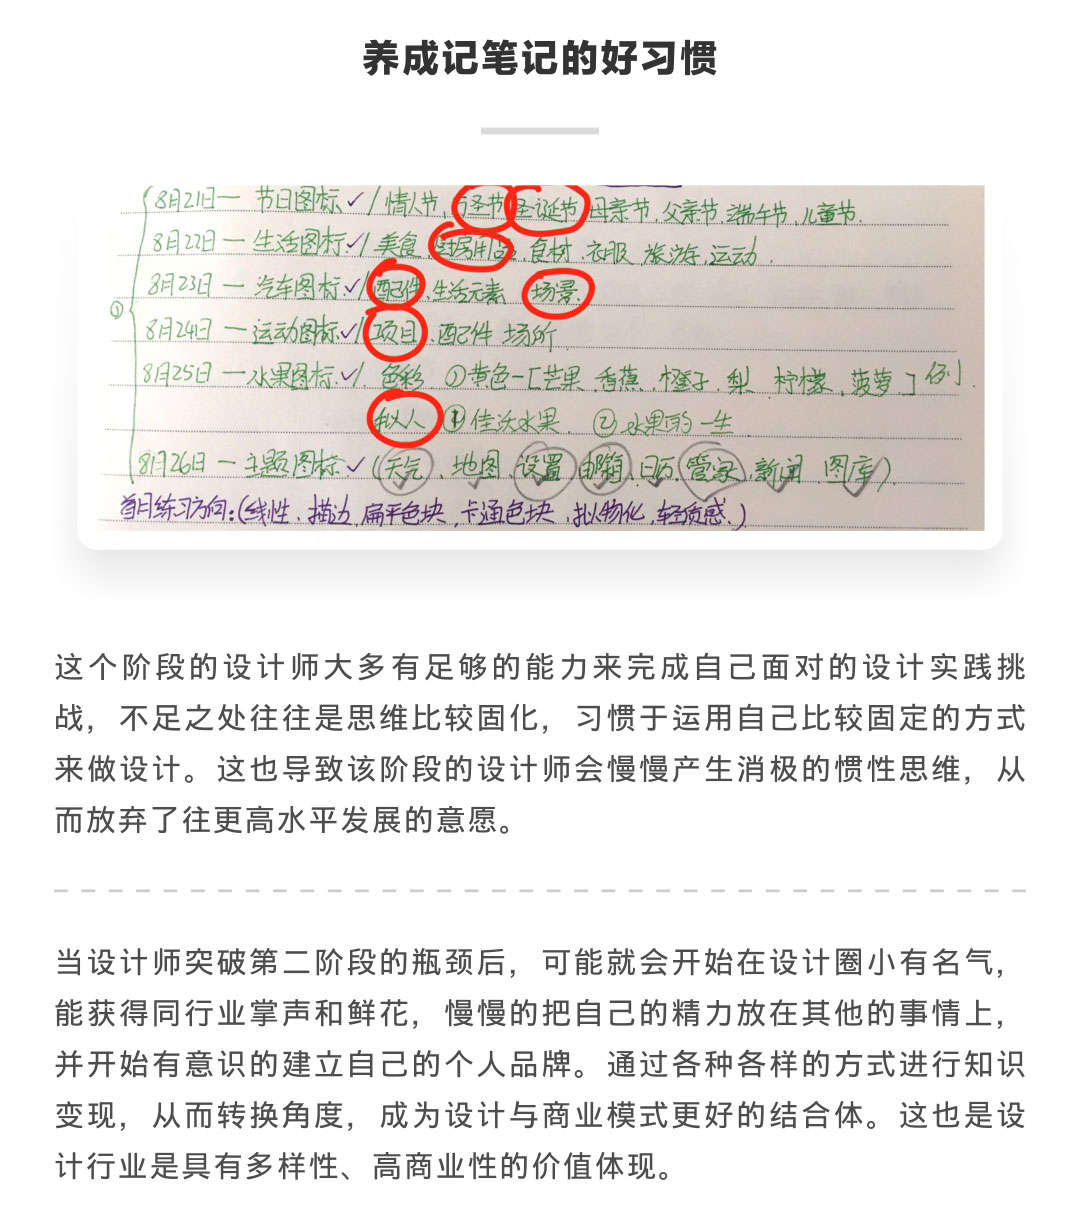 养成记笔记的好习惯
8月21日一 节日图标✓/情人节、万圣节 圣诞节 母亲节、父亲节、端午节、儿童节.
8月22日一 生活图标✓/美食、厨房用品、食材、衣服、旅游、运动.
8月23日一 汽车图标✓/配件、生活元素 场景.
① 8月24日一 运动图标✓/项目、配件 场所
8月25日一水果图标✓/、色彩 ①黄色一[芒果 香蕉、橙子、梨、柠檬、菠萝]例.
拟人 ① 佳沃水果. ② 水果的一生
8月26日一主题图标✓(天气、地图 设置、邮箱、日历、管家、新闻 图库).
首月练习方向:(线性、描边、扁平色块、卡通色块、拟物化、轻质感.)
这个阶段的设计师大多有足够的能力来完成自己面对的设计实践挑
战，不足之处往往是思维比较固化，习惯于运用自己比较固定的方式
来做设计。这也导致该阶段的设计师会慢慢产生消极的惯性思维，从
而放弃了往更高水平发展的意愿。
当设计师突破第二阶段的瓶颈后，可能就会开始在设计圈小有名气，
能获得同行业掌声和鲜花，慢慢的把自己的精力放在其他的事情上，
并开始有意识的建立自己的个人品牌。通过各种各样的方式进行知识
变现，从而转换角度，成为设计与商业模式更好的结合体。这也是设
计行业是具有多样性、高商业性的价值体现。